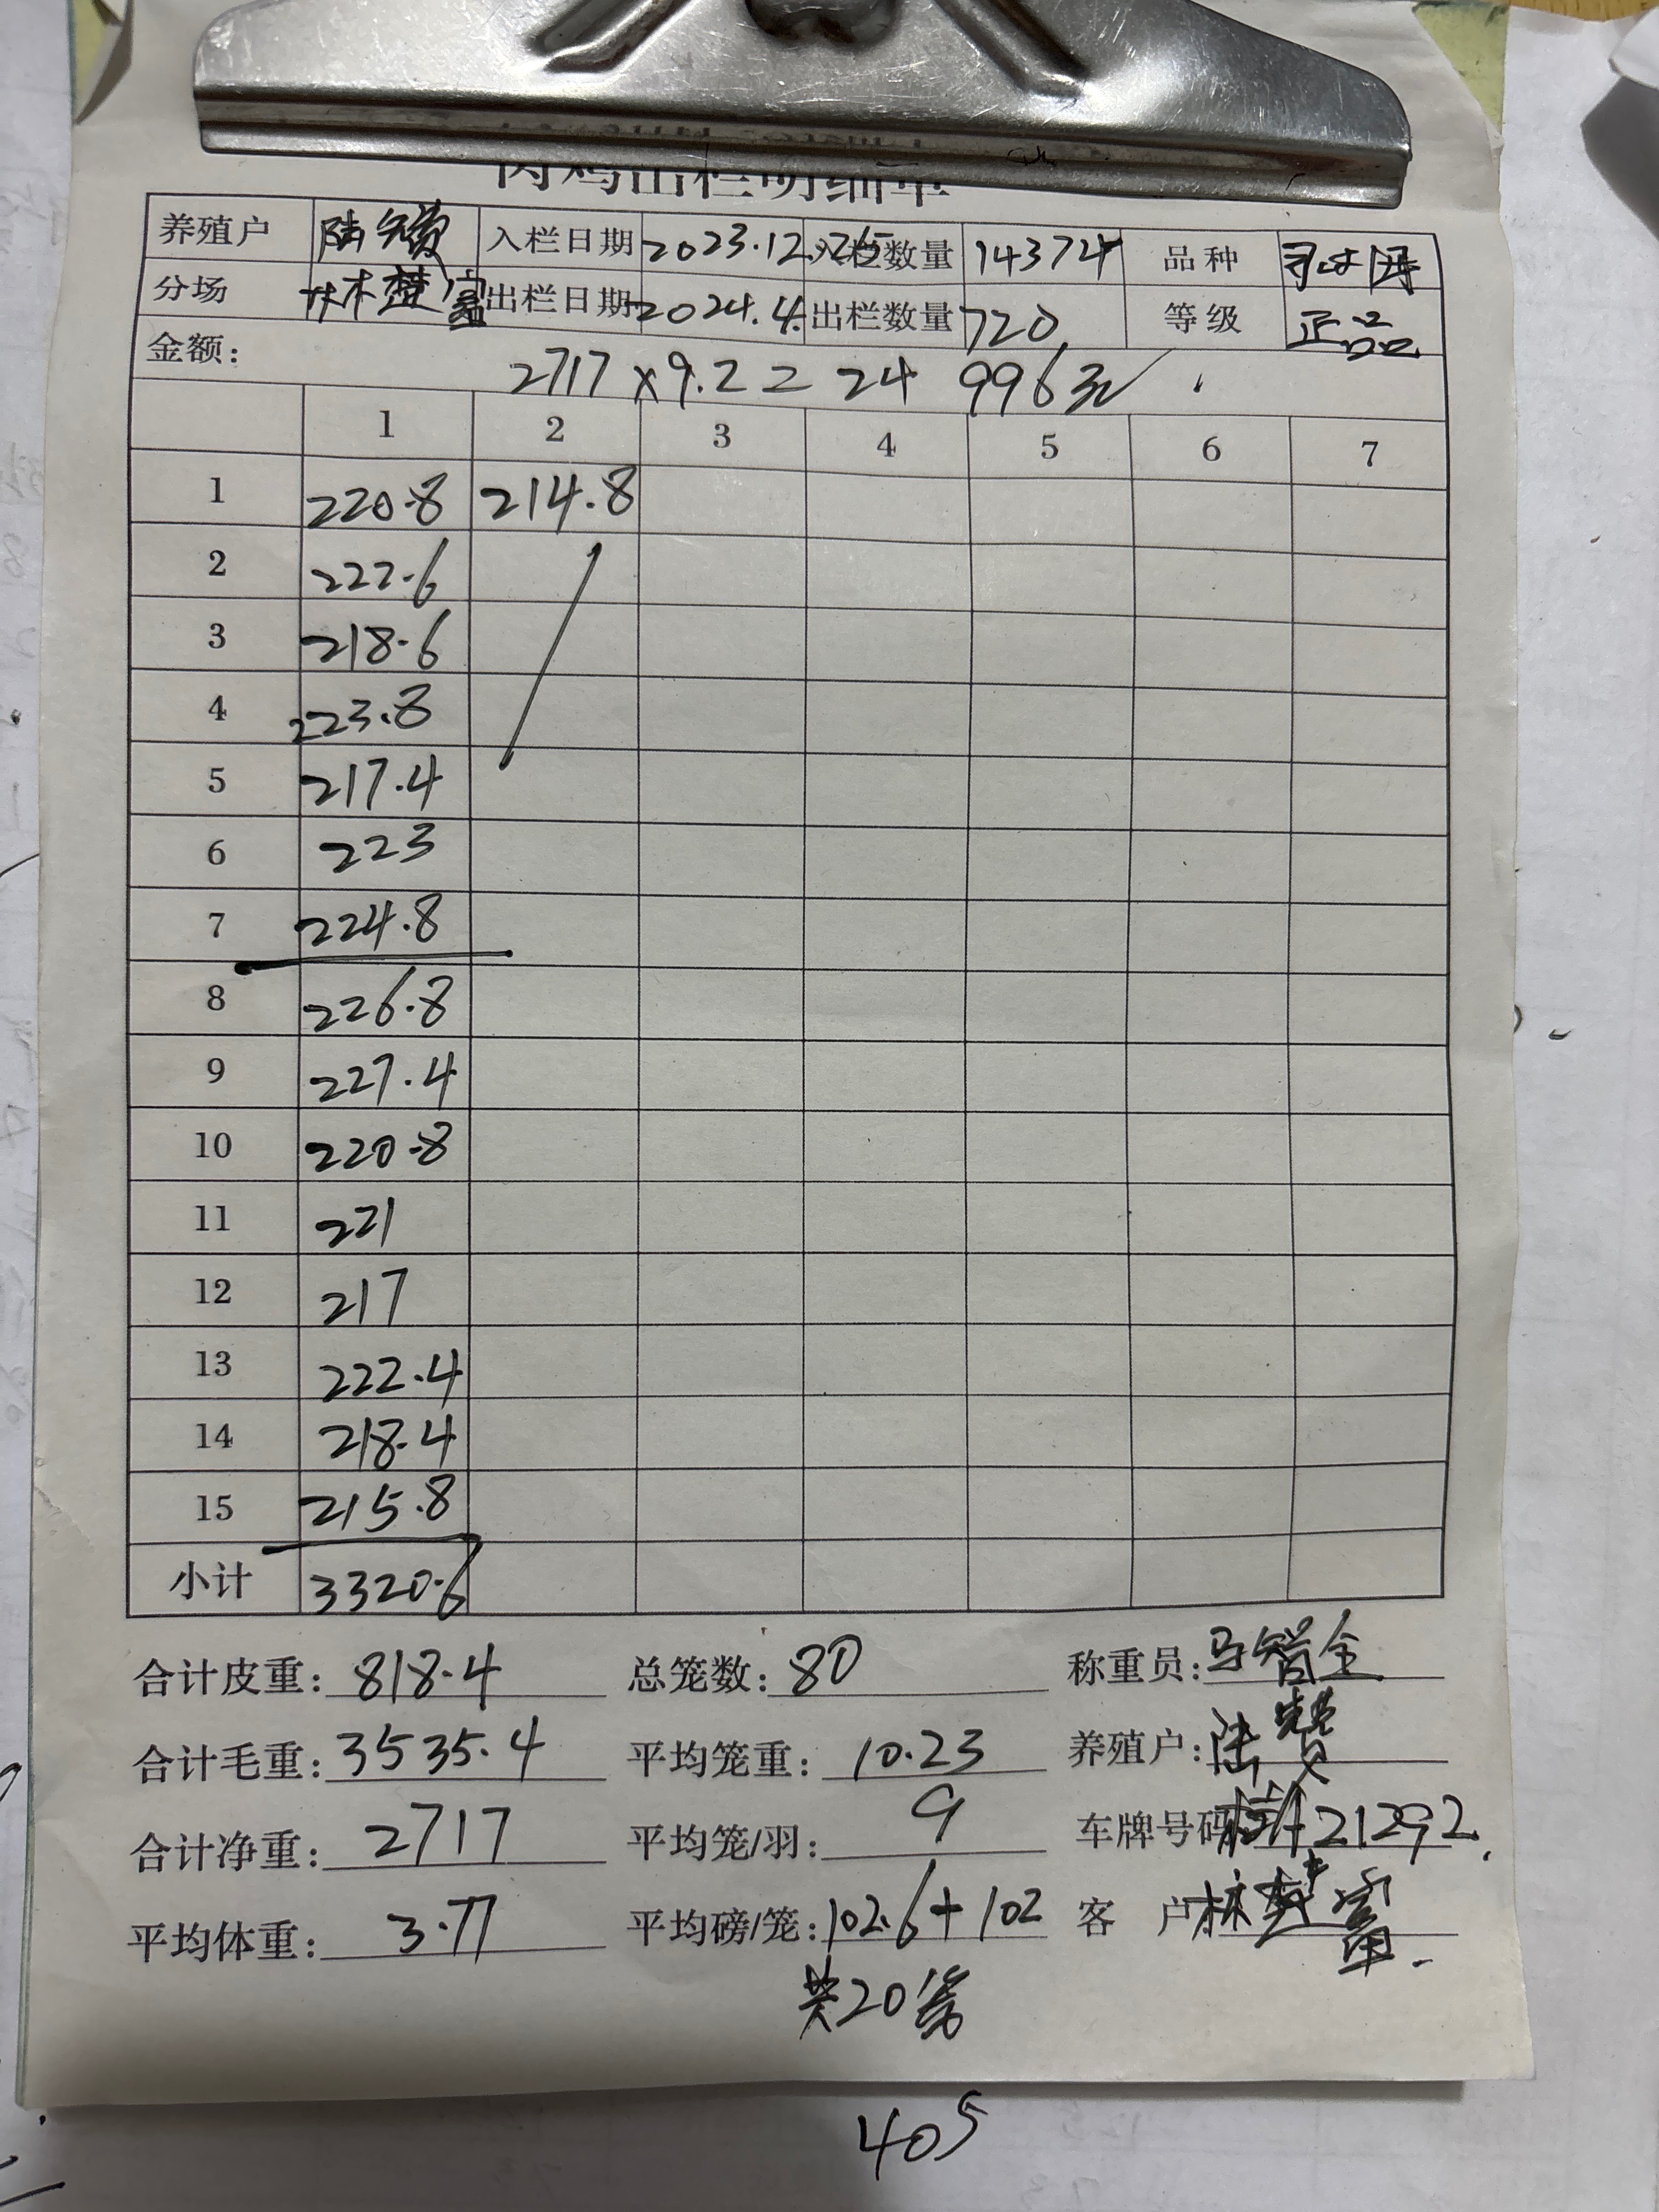 肉鸡出栏明细单
养殖户 陆赞 入栏日期 2023.12.25 入栏数量 14374 品种
分场 林楚富 出栏日期 2024.4. 出栏数量 720 等级 正品
金额: 2717×9.2=24 996元
1 2 3 4 5 6 7
1 220.8 214.8
2 222.6
3 218.6
4 223.8
5 217.4
6 223
7 224.8
8 226.8
9 227.4
10 220.8
11 221
12 217
13 222.4
14 218.4
15 215.8
小计 3320.6
合计皮重: 818.4 总笼数: 80 称重员: 马智全
合计毛重: 3535.4 平均笼重: 10.23 养殖户: 陆赞
合计净重: 2717 平均笼/羽: 9 车牌号码 21292
平均体重: 3.77 平均磅/笼: 102.6+102 客 户 林楚富
共20笼
405